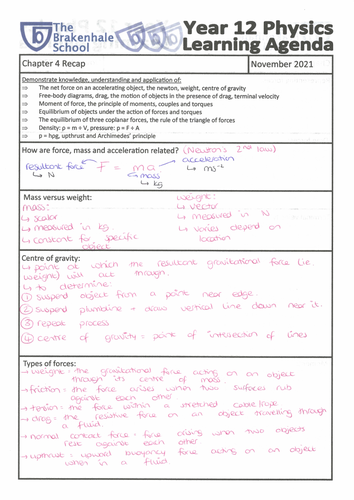 The
Brakenhale
School
Year 12 Physics
Learning Agenda
Chapter 4 Recap
November 2021
Demonstrate knowledge, understanding and application of:
The net force on an accelerating object, the newton, weight, centre of gravity
Free-body diagrams, drag, the motion of objects in the presence of drag, terminal velocity
Moment of force, the principle of moments, couples and torques
Equilibrium of objects under the action of forces and torques
The equilibrium of three coplanar forces, the rule of triangle of forces
Density: p = m ÷ V, pressure: p = F ÷ A
p = hρg, upthrust and Archimedes' principle
How are force, mass and acceleration related? (Newton's 2nd law)
resultant force F = ma acceleration
↳ N mass ↳ ms⁻²
↳ kg
Mass versus weight:
mass:
↳ scalar
↳ measured in kg
↳ constant for specific
object
weight:
↳ vector
↳ measured in N
↳ varies depend on
location
Centre of gravity:
↳ point at which the resultant gravitational force (i.e.
weight) will act through.
↳ to determine:
① suspend object from a point near edge.
② suspend plumbline + draw vertical line down near it.
③ repeat process
④ centre of gravity = point of intersection of lines
Types of forces:
→ weight = the gravitational force acting on an object
through its centre of mass.
→ friction = the force arises when two surfaces rub
against each other
→ tension = the force within a stretched cable/rope
→ drag = the resistive force on an object travelling through
a fluid.
→ normal contact force = force arising when two objects
rest against each other
→ upthrust = upward buoyancy force acting on an object
when in a fluid